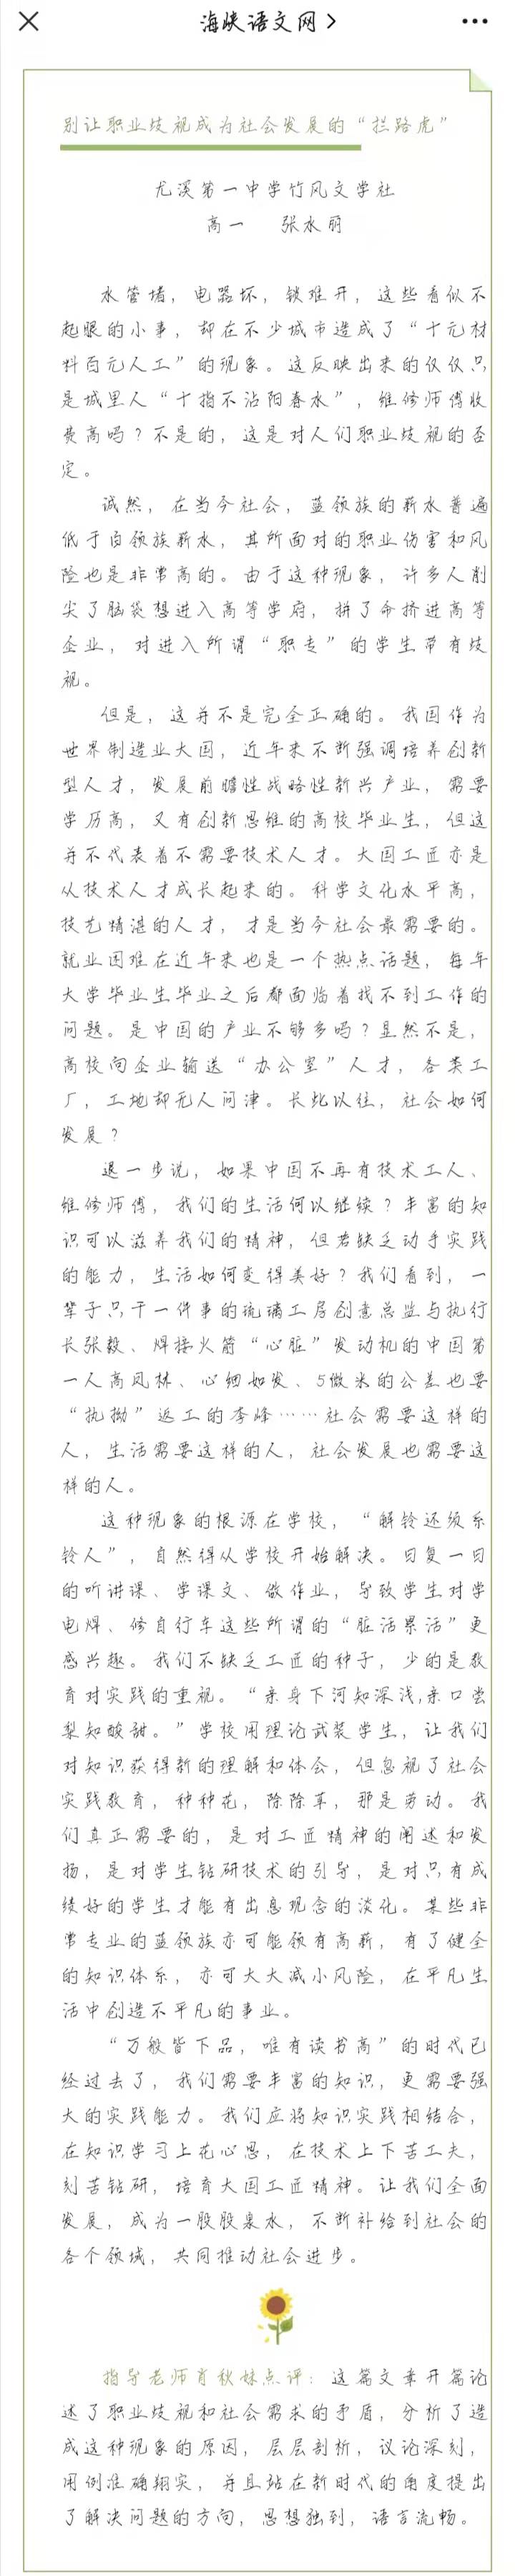 海峡语文网
别让职业歧视成为社会发展的“拦路虎”
尤溪第一中学竹风文学社
高一 张水丽
水管堵，电器坏，锁难开，这些看似不
起眼的小事，却在不少城市造成了“十元材
料百元人工”的现象。这反映出来的仅仅只
是城里人“十指不沾阳春水”，维修师傅收
费高吗？不是的，这是对人们职业歧视的否
定。
诚然，在当今社会，蓝领族的薪水普遍
低于白领族薪水，其所面对的职业伤害和风
险也是非常高的。由于这种现象，许多人削
尖了脑袋想进入高等学府，拼了命挤进高等
企业，对进入所谓“职专”的学生带有歧
视。
但是，这并不是完全正确的。我国作为
世界制造业大国，近年来不断强调培养创新
型人才，发展前瞻性战略性新兴产业，需要
学历高，又有创新思维的高校毕业生，但这
并不代表着不需要技术人才。大国工匠亦是
从技术人才成长起来的。科学文化水平高，
技艺精湛的人才，才是当今社会最需要的。
就业困难在近年来也是一个热点话题，每年
大学毕业生毕业之后都面临着找不到工作的
问题。是中国的产业不够多吗？显然不是，
高校向企业输送“办公室”人才，各类工
厂，工地却无人问津。长此以往，社会如何
发展？
退一步说，如果中国不再有技术工人、
维修师傅，我们的生活何以继续？丰富的知
识可以滋养我们的精神，但若缺乏动手实践
的能力，生活如何变得美好？我们看到，一
辈子只干一件事的琉璃工房创意总监与执行
长张毅、焊接火箭“心脏”发动机的中国第
一人高凤林、心细如发、5微米的公差也要
“执拗”返工的李峰……社会需要这样的
人，生活需要这样的人，社会发展也需要这
样的人。
这种现象的根源在学校，“解铃还须系
铃人”，自然得从学校开始解决。日复一日
的听讲课、学课文、做作业，导致学生对学
电焊、修自行车这些所谓的“脏活累活”更
感兴趣。我们不缺乏工匠的种子，少的是教
育对实践的重视。“亲身下河知深浅,亲口尝
梨知酸甜。”学校用理论武装学生，让我们
对知识获得新的理解和体会，但忽视了社会
实践教育，种种花，除除草，那是劳动。我
们真正需要的，是对工匠精神的阐述和发
扬，是对学生钻研技术的引导，是对只有成
绩好的学生才能有出息观念的淡化。某些非
常专业的蓝领族亦可能领有高薪，有了健全
的知识体系，亦可大大减小风险，在平凡生
活中创造不平凡的事业。
“万般皆下品，唯有读书高”的时代已
经过去了，我们需要丰富的知识，更需要强
大的实践能力。我们应将知识实践相结合，
在知识学习上花心思，在技术上下苦工夫，
刻苦钻研，培育大国工匠精神。让我们全面
发展，成为一股股泉水，不断补给到社会的
各个领域，共同推动社会进步。
指导老师肖秋妹点评：这篇文章开篇论
述了职业歧视和社会需求的矛盾，分析了造
成这种现象的原因，层层剖析，议论深刻，
用例准确翔实，并且站在新时代的角度提出
了解决问题的方向，思想独到，语言流畅。